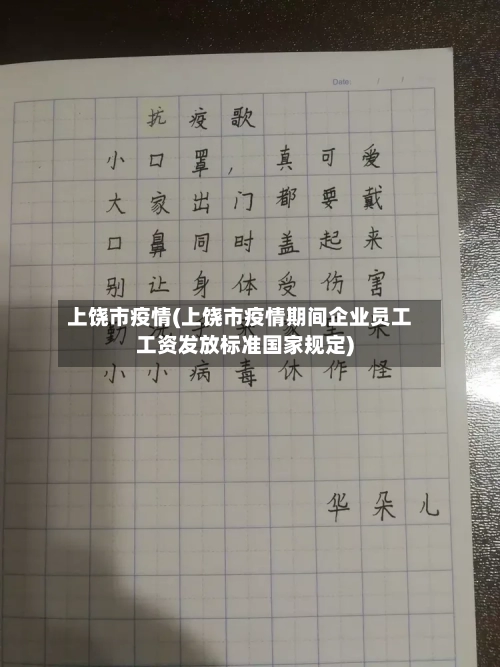 Date: / /
抗疫歌
小口罩，真可爱
大家出门都要戴
口鼻同时盖起来
别让身体受伤害
上饶市疫情(上饶市疫情期间企业员工
工资发放标准国家规定)
小小病毒休作怪
华朵儿